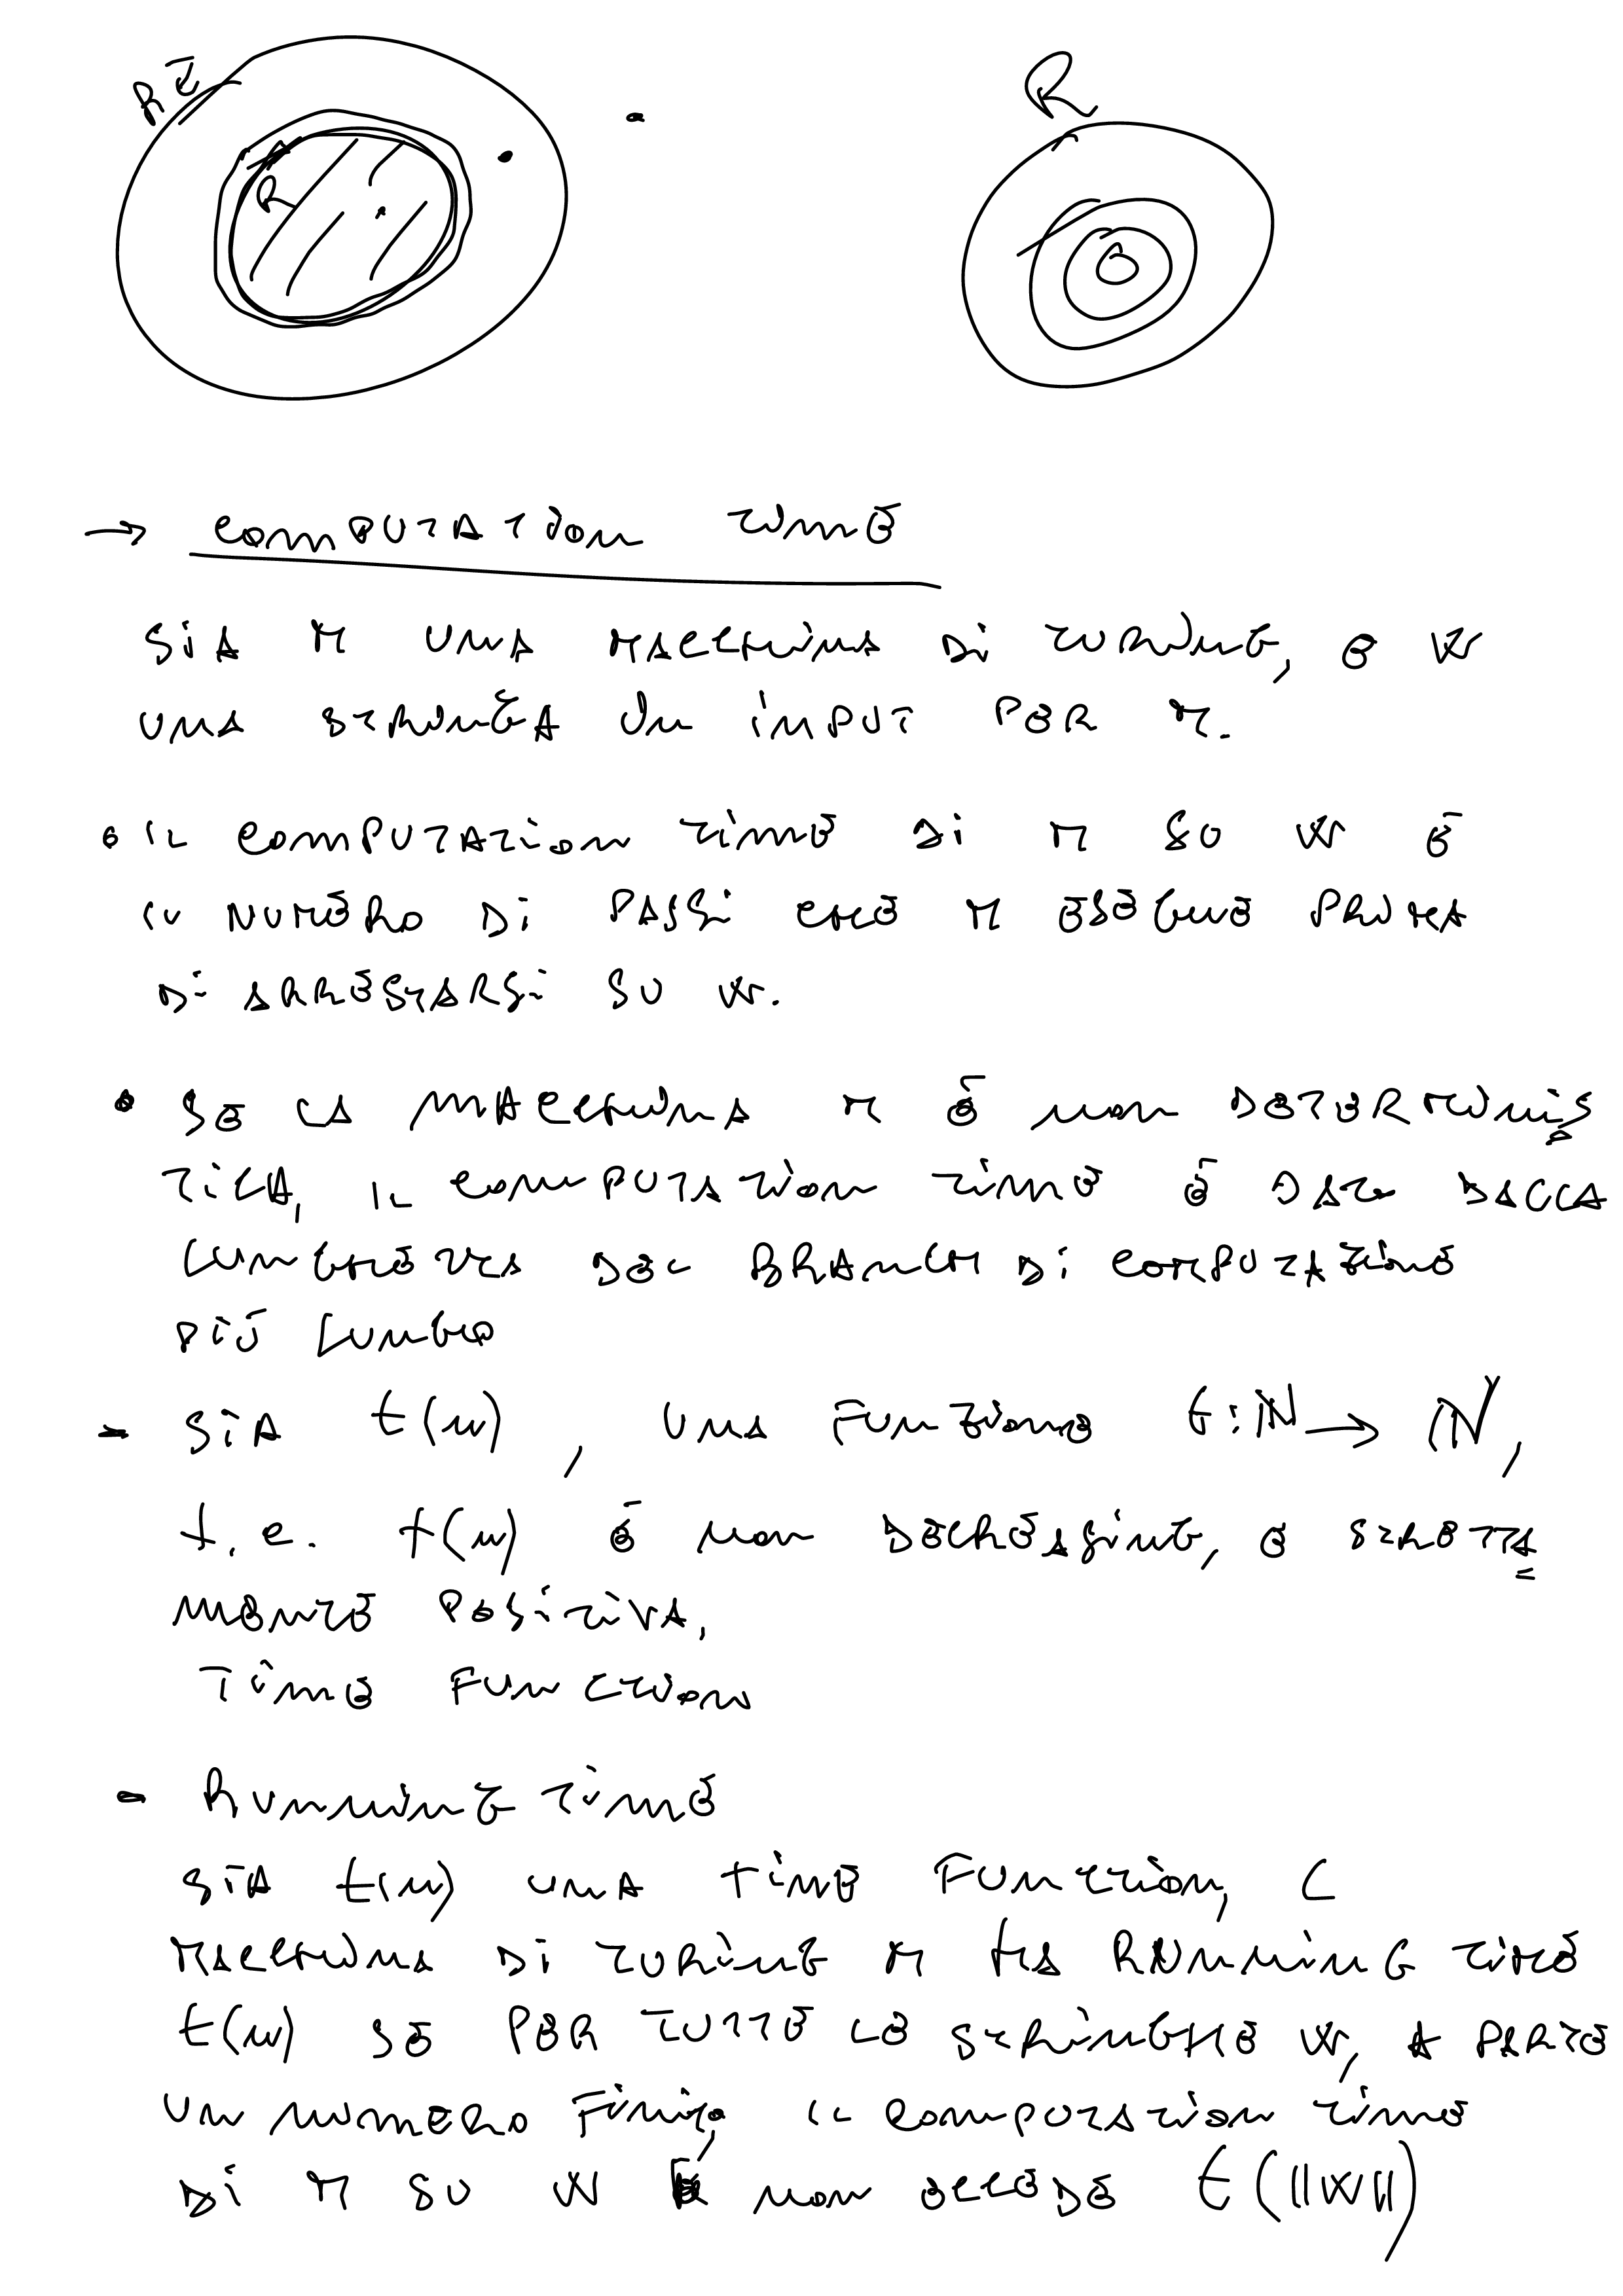 RE
R
R
→ COMPUTATION TIME
SIA M UNA MACCHINA DI TURING, E W
UNA STRINGA IN INPUT PER M.
• IL COMPUTATION TIME DI M SU W È
IL NUMERO DI PASSI CHE M ESEGUE PRIMA
DI ARRESTARSI SU W.
• SE LA MACCHINA M È NON DETERMINIS
TICA, IL COMPUTATION TIME È DATO DALLA
LUNGHEZZA DEL BRANCH DI COMPUTAZIONE
PIÙ LUNGO
- SIA t(n), UNA FUNZIONE t: ℕ → ℕ,
t.c. t(n) È NON DECREASING, E STRETTA
MENTE POSITIVA,
TIME FUNCTION
- RUNNING TIME
SIA t(n) UNA TIME FUNCTION, L
MACCHINA DI TURING M HA RUNNING TIME
t(n) SE PER TUTTE LE STRINGHE W, A PARTE
UN NUMERO FINITO, IL COMPUTATION TIME
DI M SU W NON ECCEDE t(||W||)